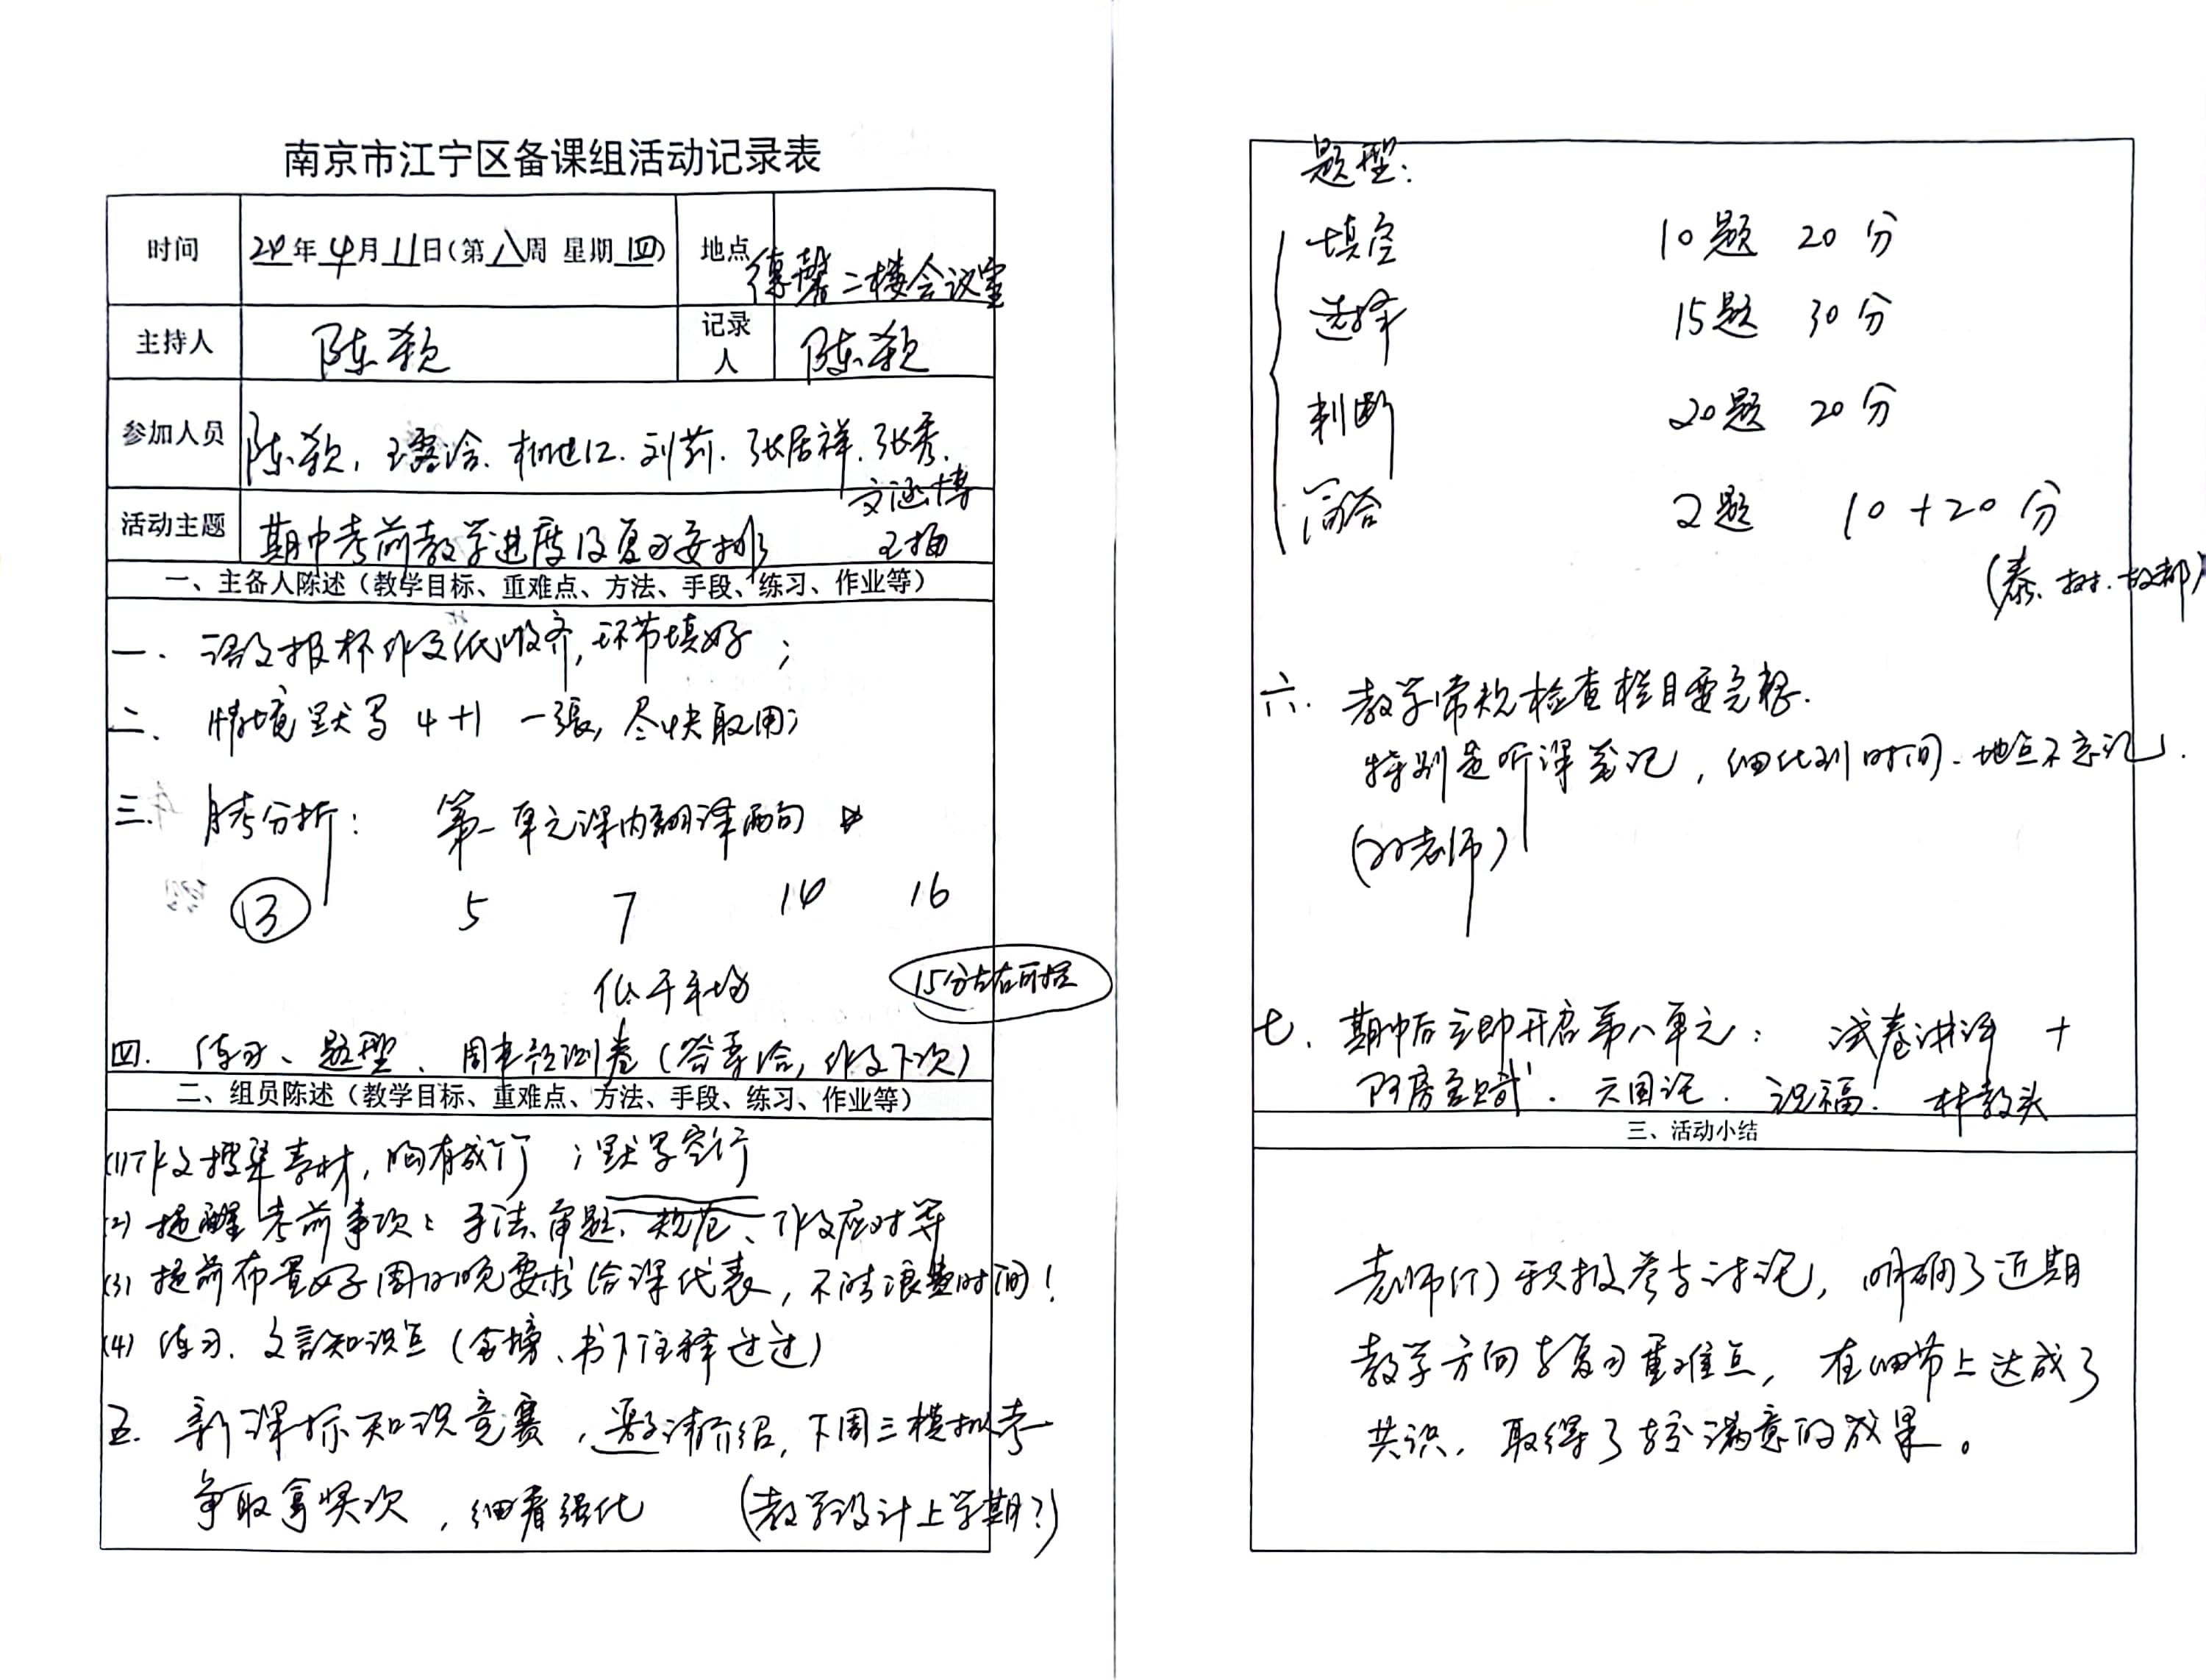 南京市江宁区备课组活动记录表
时间 24年4月11日(第八周 星期四) 地点 德馨二楼会议室
主持人 陈颖 记录人 陈颖
参加人员 陈颖, 王露 刘莉. 张居祥. 张秀.
文涵博
活动主题 期中考前教学进度及复习安排
一、主备人陈述（教学目标、重难点、方法、手段、练习、作业等）
一. 语文报杯作文纸收齐, 环节填好;
二、情境默写 4+1 一张, 尽快取用;
三. 月考分析: 第一单元课内翻译两句
③ 5 7 14 16
低于平均
15分左右可提
四. 练习、题型、周末预测卷 (答案给, 作文下次)
二、组员陈述（教学目标、重难点、方法、手段、练习、作业等）
(1) 作文搜集素材, 胸有成竹; 默写空行
(2) 提醒考前事项: 手法、审题、规范、作文应对等
(3) 提前布置好周日晚要求给课代表, 不浪费时间!
(4) 练习. 文言知识点 (金榜、书下注释过过)
五. 新课标知识竞赛, 邀请介绍, 下周三模拟考
争取拿奖次, 细看强化 (教学设计上学期?)
题型:
填空 10题 20分
选择 15题 30分
判断 20题 20分
简答 2题 10+20分
(秦、树、故都)
六. 教学常规检查栏目要完整.
特别是听课笔记, 细化到时间、地点不忘记.
七. 期中后立即开启第八单元: 试卷讲评 +
阿房宫赋. 六国论. 祝福. 林教头
三、活动小结
老师们积极参与讨论, 明确了近期
教学方向与复习重难点, 在细节上达成了
共识, 取得了较满意的成果。